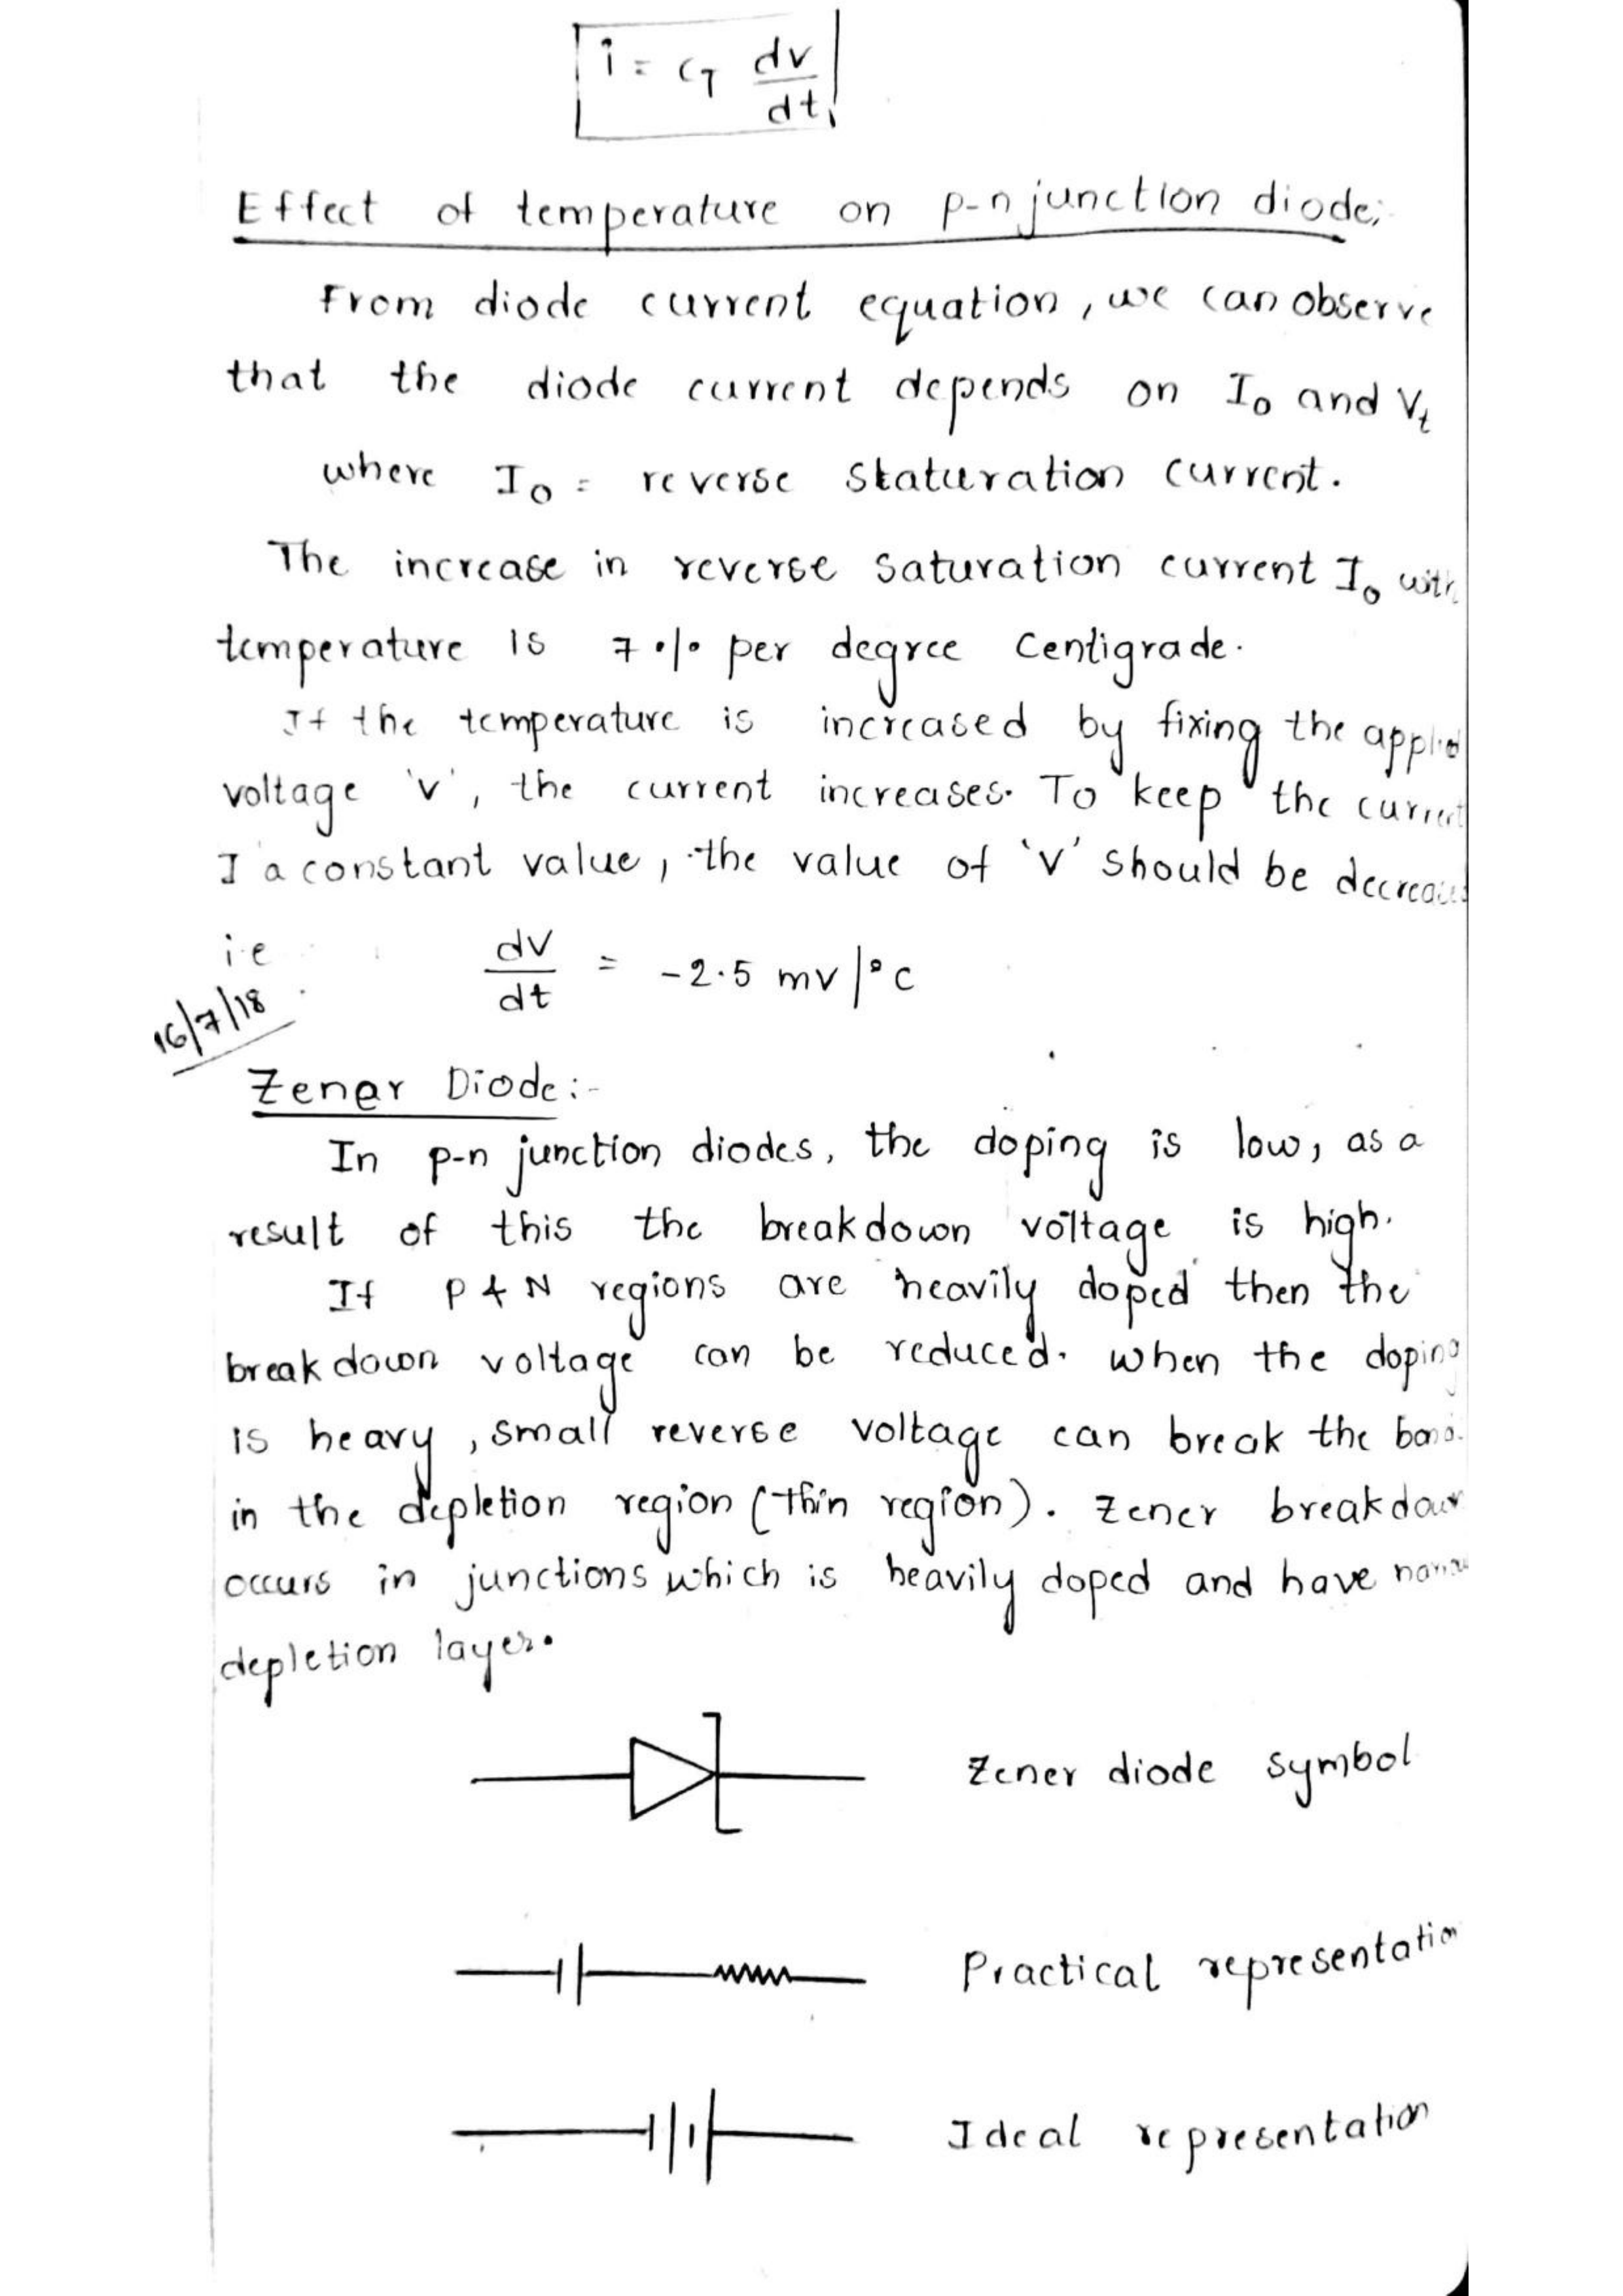 i = CT dv/dt
Effect of temperature on p-n junction diode:
From diode current equation, we can observe
that the diode current depends on I0 and Vt
where I0 = reverse Staturation current.
The increase in reverse saturation current I0 with
temperature is 7% per degree Centigrade.
If the temperature is increased by fixing the applied
voltage 'v', the current increases. To keep the current
I a constant value, the value of 'v' should be decreased
i.e dv/dt = -2.5 mv/°c
16/7/18
Zener Diode:-
In p-n junction diodes, the doping is low, as a
result of this the breakdown voltage is high.
If P & N regions are heavily doped then the
breakdown voltage can be reduced. When the doping
is heavy, small reverse voltage can break the
in the depletion region (thin region). Zener breakdown
occurs in junctions which is heavily doped and have
depletion layer.
Zener diode symbol
Practical representation
Ideal representation